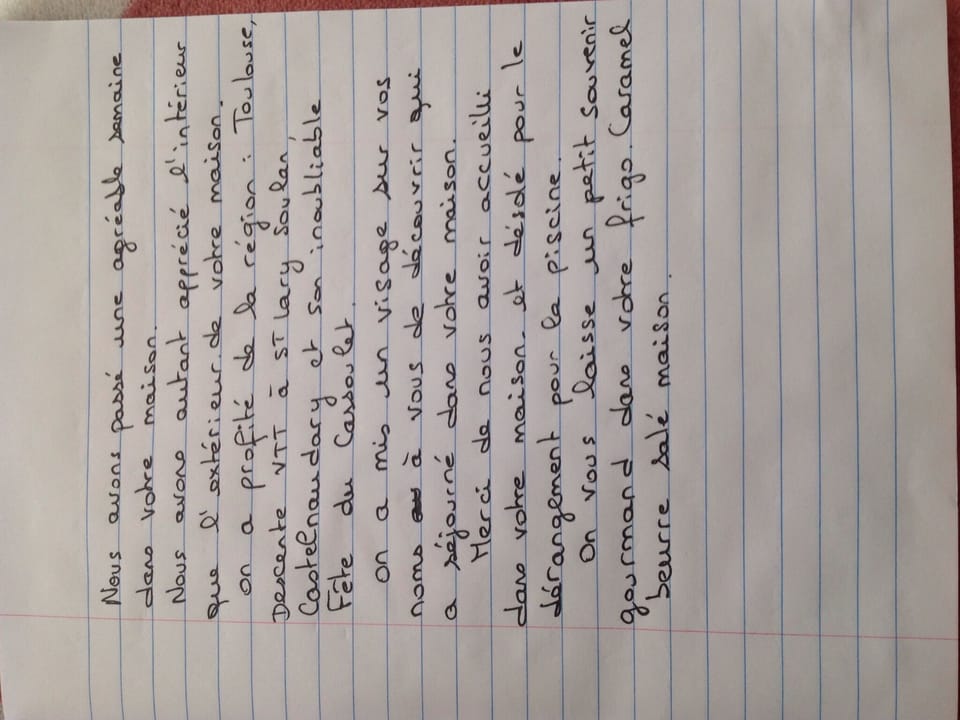 Nous avons passé une agréable semaine
dans votre maison.
Nous avons autant apprécié l'intérieur
que l'extérieur de votre maison.
on a profité de la région : Toulouse,
Descente VTT à ST Lary Soulan,
Castelnaudary et son inoubliable
Fête du Cassoulet.
on a mis un visage sur vos
noms à vous de découvrir qui
a séjourné dans votre maison.
Merci de nous avoir accueilli
dans votre maison. et désolé pour le
dérangement pour la piscine.
On vous laisse un petit souvenir
gourmand dans votre frigo. Caramel
beurre salé maison.